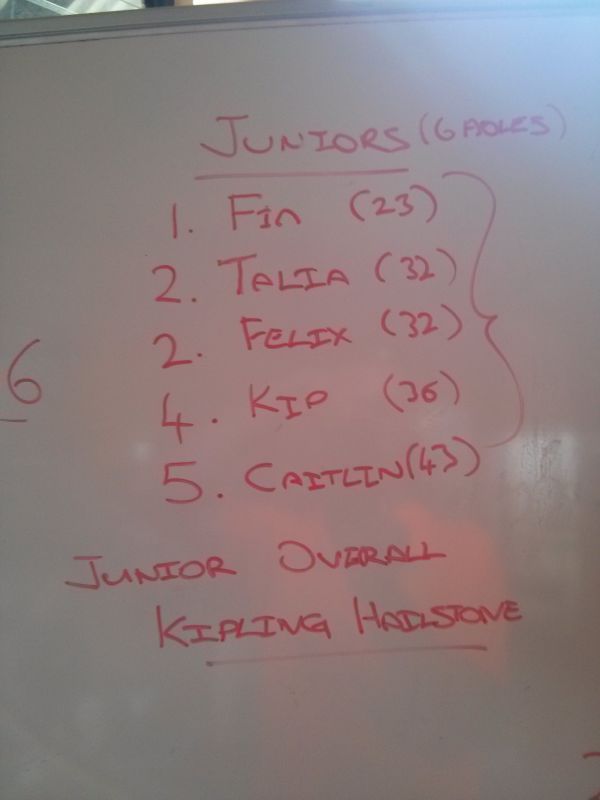 JUNIORS (6 HOLES)
1. FIN (23)
2. TALIA (32)
2. FELIX (32)
6
4. KIP (36)
5. CAITLIN (43)
JUNIOR OVERALL
KIPLING HAILSTONE